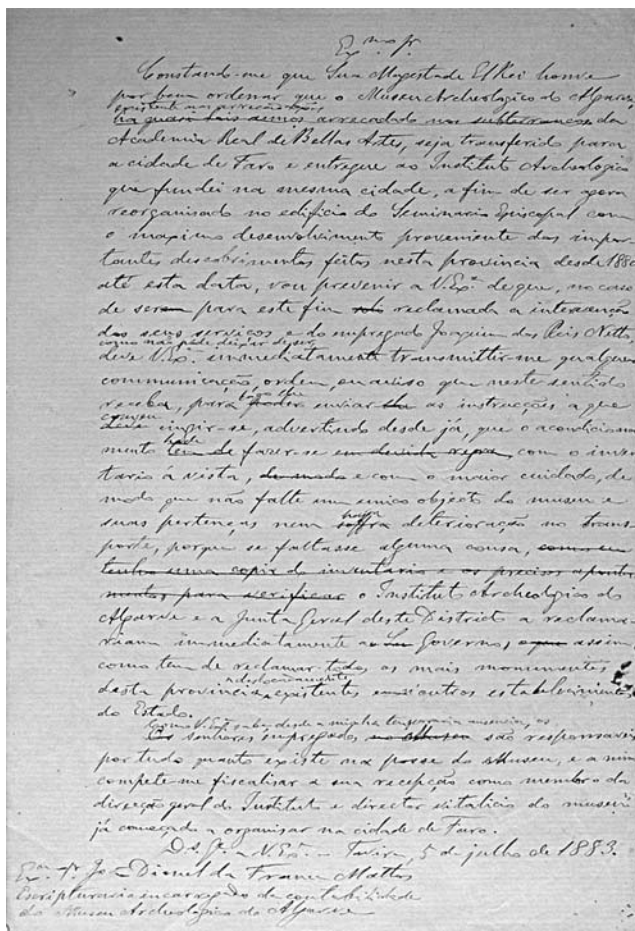 Ex.mo Sr.
Constando-me que Sua Magestade El Rei houve
por bem ordenar que o Museu Archeologico do Algarve,
existente nas arrecadações
ha quasi dois annos arrecadado nos subterraneos da
Academia Real de Bellas Artes, seja transferido para
a cidade de Faro e entregue ao Instituto Archeologico
que fundei na mesma cidade, a fim de ser agora
reorganisado no edificio do Seminario Episcopal com
o maximo desenvolvimento proveniente das impor-
tantes descobrimentos feitos nesta provincia desde 1880
até esta data, vou prevenir a V. Ex.ª de que, no caso
de ser para este fim reclamada a intervenção
dos seus serviços e do empregado Joaquim dos Reis Netto,
como não póde deixar de ser,
deve V. Ex.ª immediatamente transmittir-me qualquer
communicação, ordem, ou aviso que neste sentido
receba, para poder enviar as instrucções a que
convem
deve cingir-se, advertindo desde já, que o acondiciona-
mento tem de fazer-se em devida regra, com o inven-
tario á vista, de modo e com o maior cuidado, de
modo que não falte um unico objecto do museu e
suas pertenças nem
haja
soffra deterioração no trans-
porte, porque se faltasse alguma cousa, como eu
tenho uma copia do inventario e os precisos aponta-
mentos para verificar o Instituto Archeologico do
Algarve e a Junta Geral deste Districto a reclama-
riam immediatamente ao Governo, assim
como tem de reclamar todos os mais monumentos
desta provincia, existentes outros estabelecimentos
do Estado.
Como V. Ex.ª sabe, desde a minha temporaria ausencia, os
Os senhores empregados no Museu são responsaveis
por tudo quanto existe na posse do Museu, e a mim
compete-me fiscalisar a sua recepção como membro da
direcção geral do Instituto e director vitalicio do museu
já começado a organisar na cidade de Faro.
D.s G.e a V. Ex.ª – Tavira, 5 de julho de 1883.
Ex.mo Sr. Daniel da Franca Mattos
Escripturario encarregado da contabilidade
do Museu Archeologico do Algarve